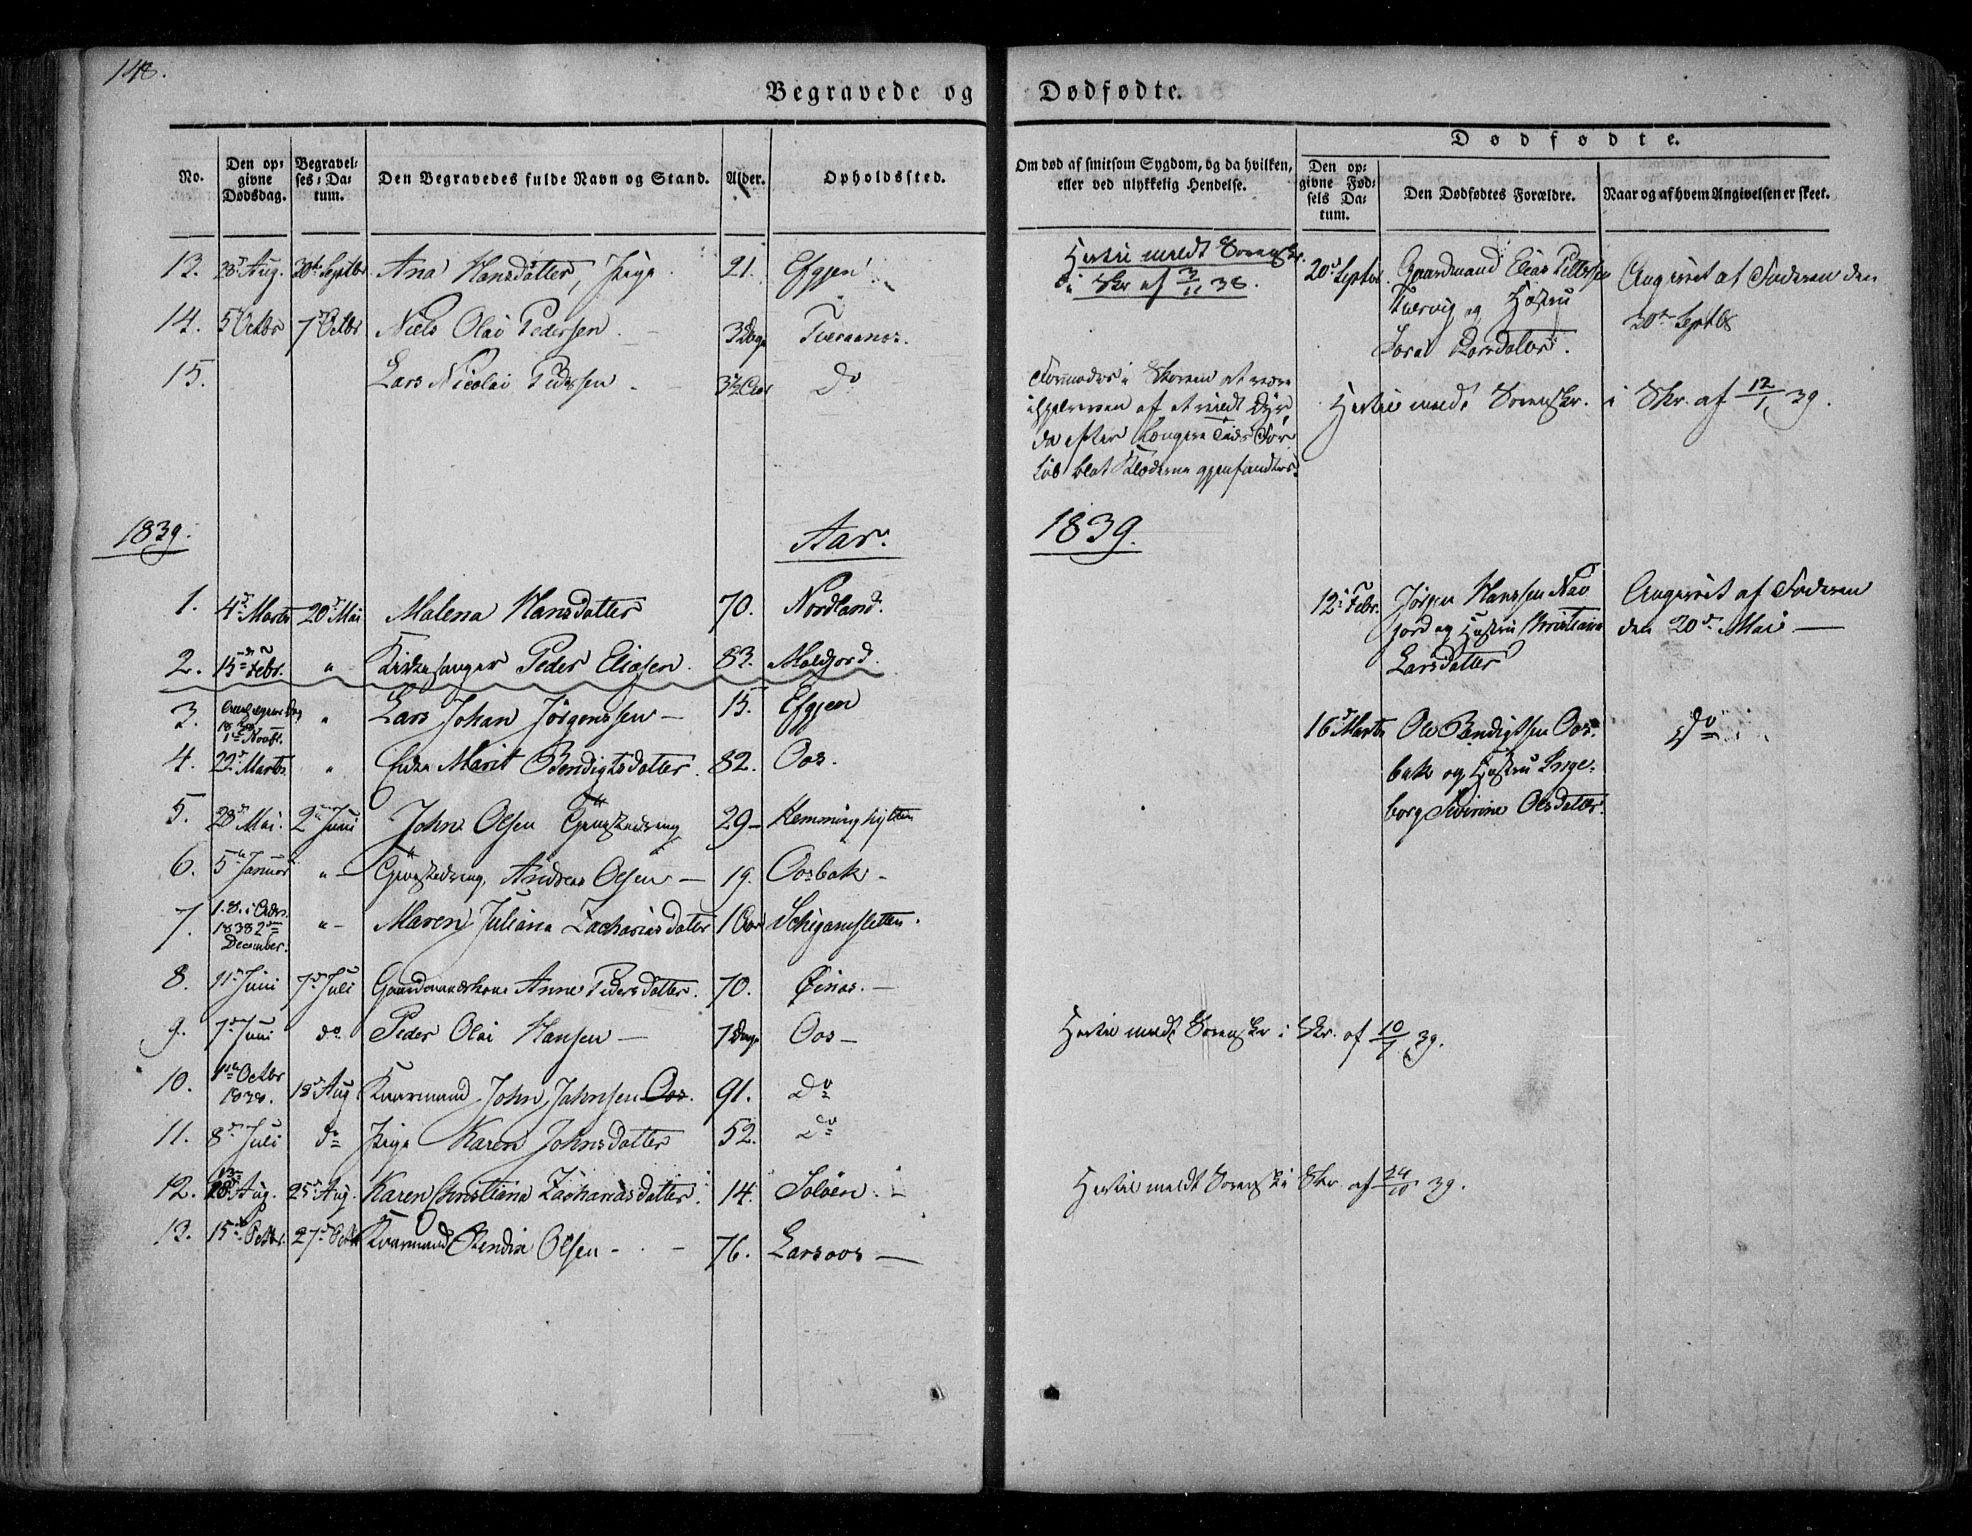 148.
Begravede og Dødfødte.
No. Den opgivne Dødsdag. Begravelses-Datum. Den Begravedes fulde Navn og Stand. Alder. Opholdssted.
13. 28de Aug. 30te Septbr Ana Hansdatter, Pige 21. Efgjen
14. 5te Octbr 7de Octbr Niels Olai Pedersen. 3 Dage Tveraanes.
15. Lars Nicolai Pedersen. 3½ Aar Do
1839. Aar.
1. 4de Marts 20de Mai Malena Hansdatter 70. Nordland.
2. 15de Febr. " Kirkesanger Peder Eliasen. 83. Molfjord.
3. " Lars Johan Jörgenssen 15. Efgjen
4. 22de Marts " Enke Marit Bendigtsdatter. 82. Oos.
5. 28de Mai. 2den Juni John Olsen 29 Hemminghytten
6. 5te Januar " Andreas Olsen 19. Oosbak
7. 1838 2den December. " Maren Juliana Zachariasdatter 1 Aar
8. 11te Juni 7de Juli Gaardmandskone Anne Pedersdatter. 70. Øinos.
9. 7de Juni do Peder Olai Hansen 7 Dage Oos
10. Octbr 1838. 18de Aug Kaarmand John Johnsen Oos. 91. Do
11. 8de Juli do Pige Karen Johnsdatter 52. Do
12. Aug. 25de Aug. Karen Christiana Zachariasdatter. 14. Soløen.
13. 15de Octbr. 27de Octbr Kaarmand Olsen 76. Larsoos
Om død af smitsom Sygdom, og da hvilken, eller ved ulykkelig Hendelse.
Dødfødte.
Den opgivne Fødsels Datum. Den Dødfødtes Forældre. Naar og af hvem Angivelsen er skeet.
Hertil meldt Sorenskr.
i Skr af 38.
20de Septbr. Gaardmand Elias Pettersen
og Hustru
Larsdatter.
Angivet af Faderen den
30te Septbr
Formodes i Skoven at være
ihjelreven af et vildt Dyr
da efter længere Tids For
løb blot Klæderne gjenfandtes.
Hertil meldt Sorenskr. i Skr. af 12/1 39.
1839.
12te Febr. Jørgen Hanssen Nav
fjord og Hustru Christiana
Larsdatter
Angivet af Faderen
den 20de Mai
16de Marts Ole Bendigtsen Oos-
bak og Hustru Inge-
borg Sivirine Olsdatter.
Do
Hertil meldt Sorenskr i Skr. af 10/7 39.
Hertil meldt Sorensk i Skr. af 24/10 39.